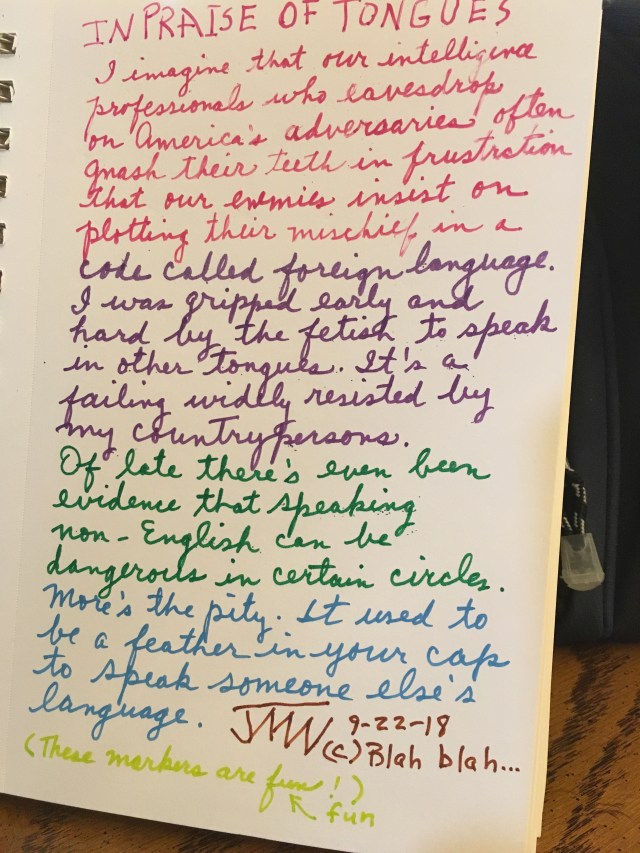 IN PRAISE OF TONGUES
I imagine that our intelligence
professionals who eavesdrop
on America's adversaries often
gnash their teeth in frustration
that our enemies insist on
plotting their mischief in a
code called foreign language.
I was gripped early and
hard by the fetish to speak
in other tongues. It's a
failing widely resisted by
my countrypersons.
Of late there's even been
evidence that speaking
non-English can be
dangerous in certain circles.
More's the pity. It used to
be a feather in your cap
to speak someone else's
language.
JMW 9-22-18
(c) Blah blah...
(These markers are fun!)
fun